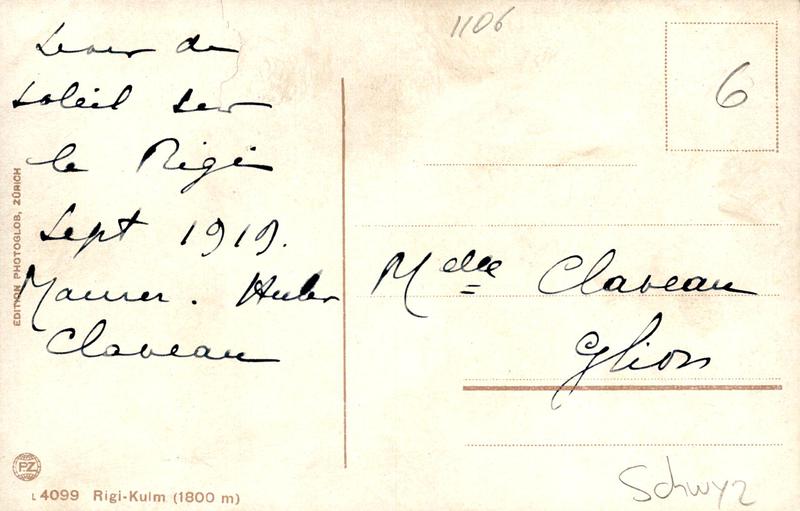 Lever de
soleil sur
le Rigi
Sept 1919.
Maurer. Huber
Claveau
EDITION PHOTOGLOB, ZÜRICH
PZ
L 4099 Rigi-Kulm (1800 m)
1106
6
Mdlle Claveau
Glion
Schwyz